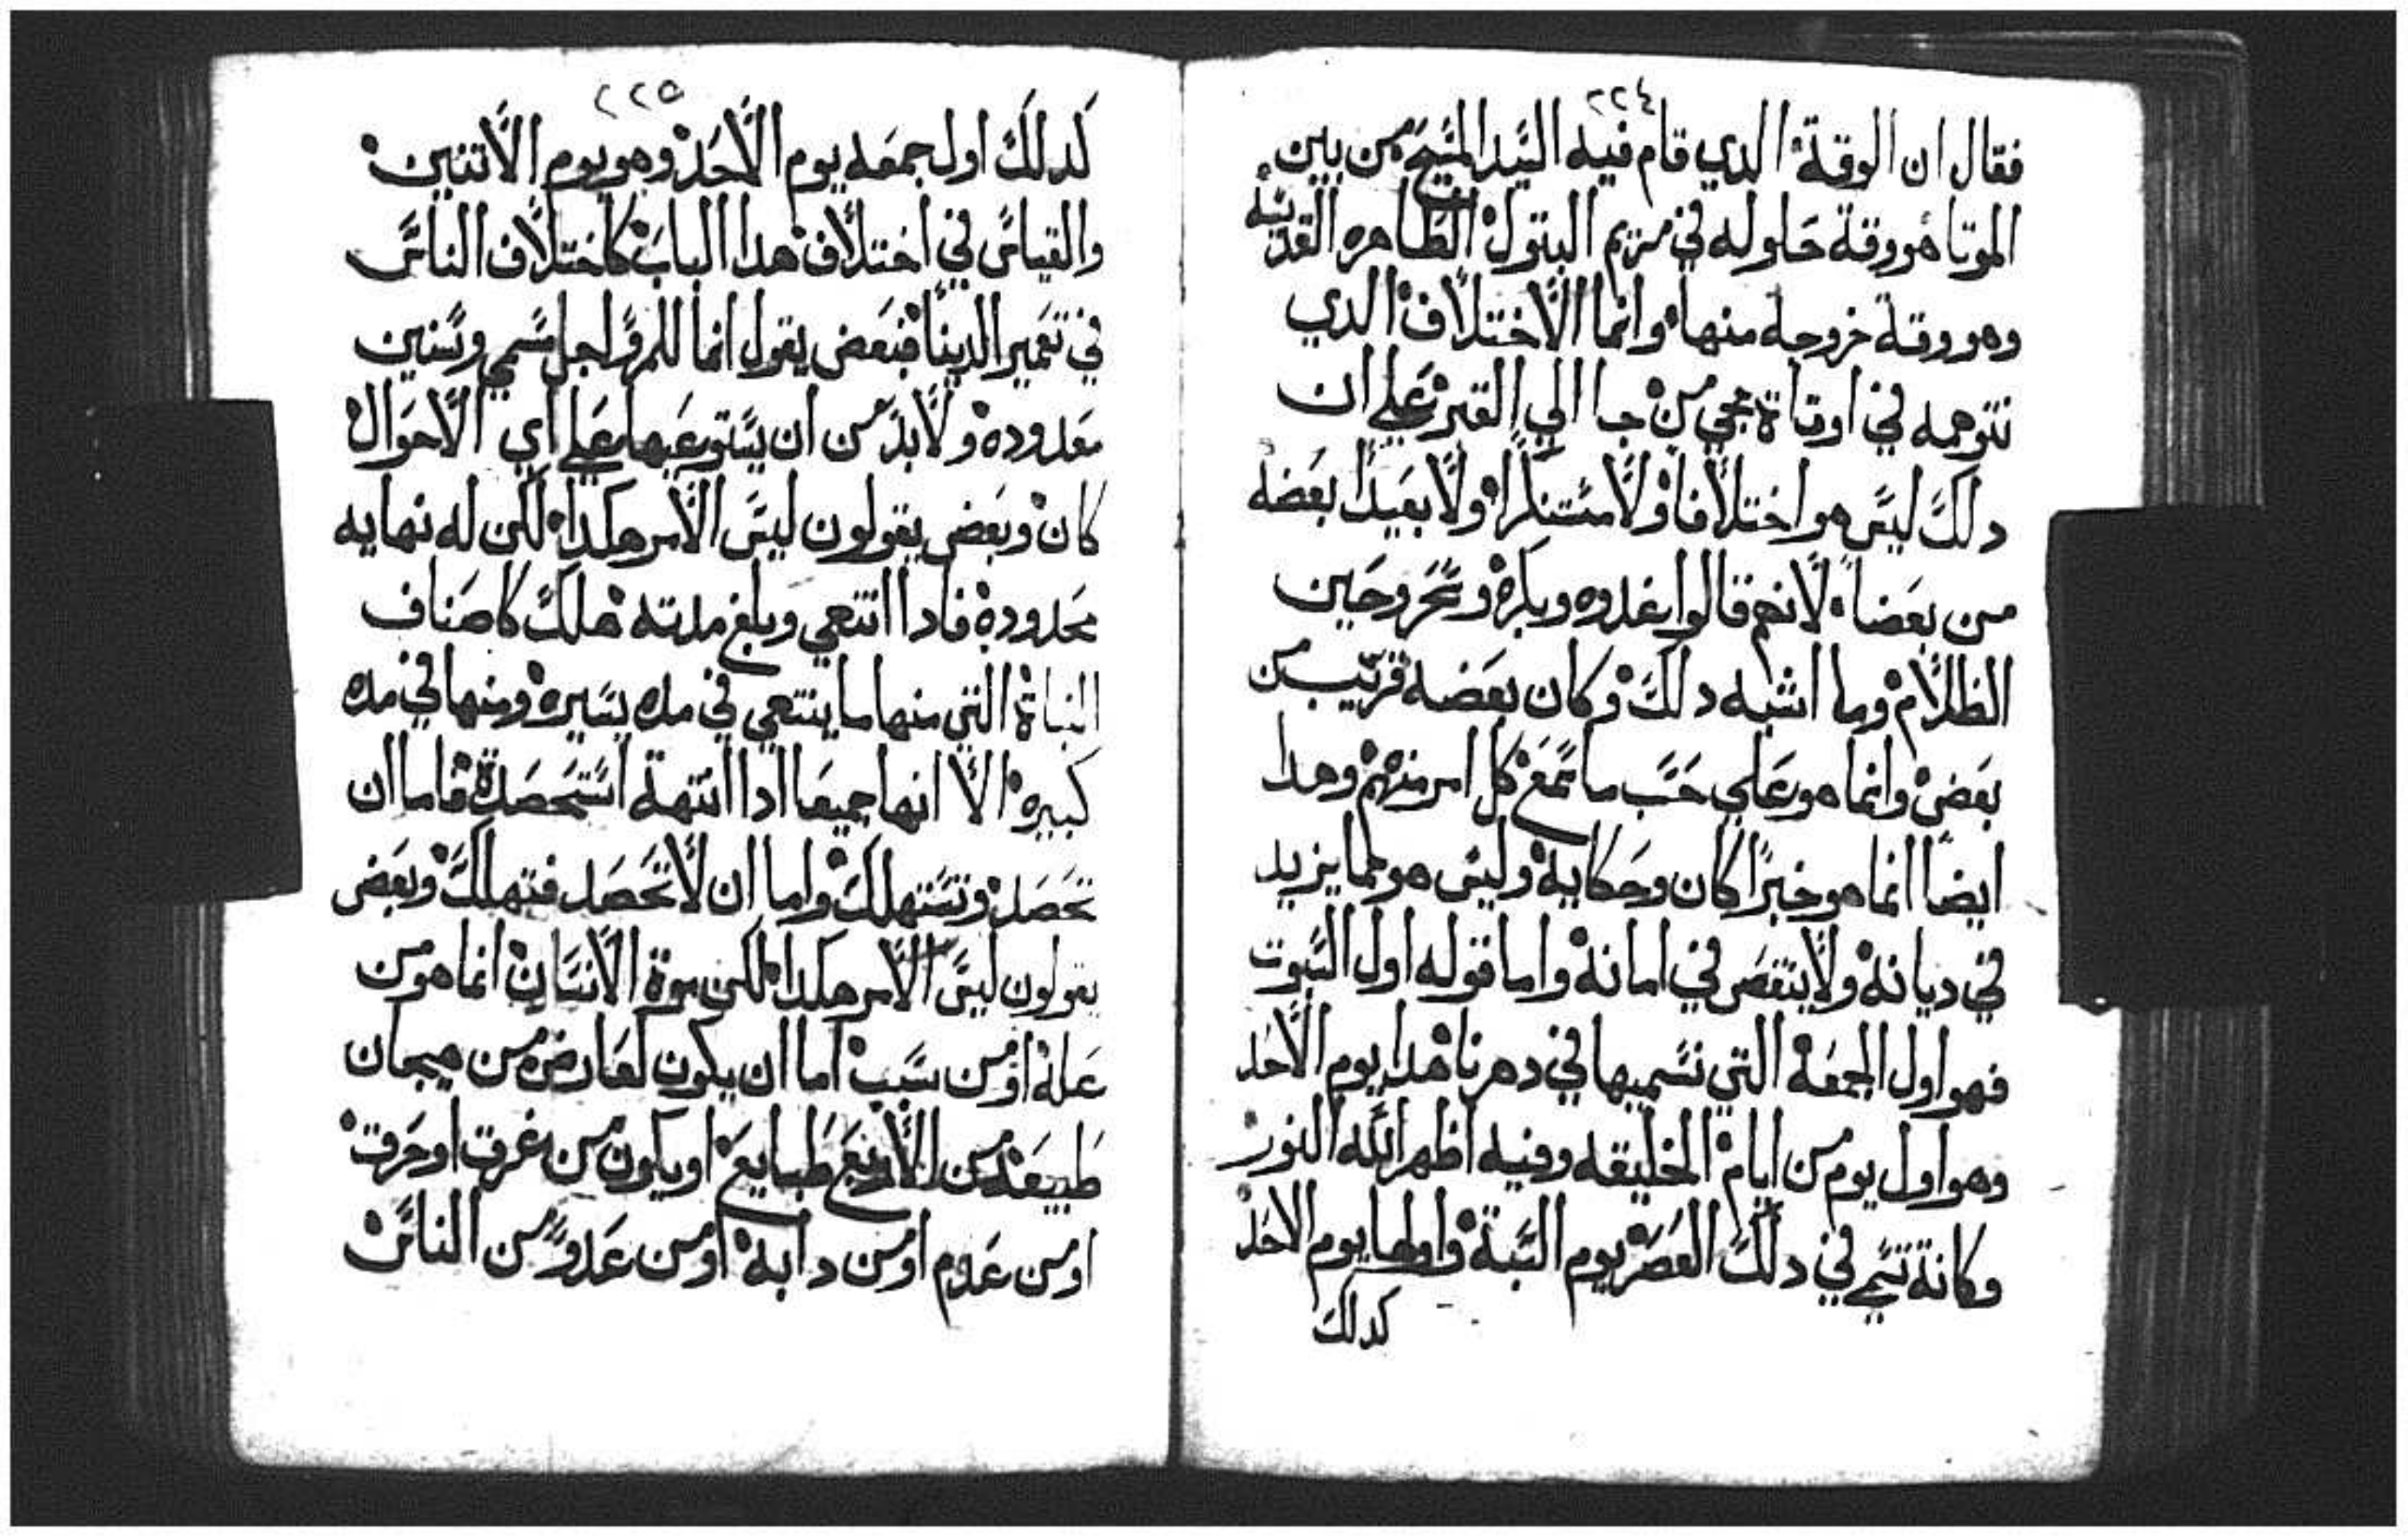 ٢٢٤
فقال ان الوقة الدي قام فيه السيد المسيح من بين
الموتا هو وقة حلوله في مريم البتول الطاهره القديسه
وهو وقة خروجه منها وانما الاختلاف الدي
نتوهمه في اوقاة مجي من جا الي القبر علي ان
دلك ليس هو اختلافا ولا مستنكرا ولا بعيدا بعضه
من بعضا لانهم قالوا بغدوه وباكره وسحر وحين
الظلام وما اشبه دلك وكان بعضه قريب من
بعض وانما هو علي حسب ما سمع كل امر منهم وهدا
ايضا انما هو خبرا كان وحكاية وليس هو مما يزيد
في ديانة ولا ينقص في امانة واما قوله اول السبوت
فهو اول الجمعة التي نسميها في دهرنا هدا يوم الاحد
وهو اول يوم من ايام الخليقه وفيه اظهر الله النور
وكانة تسمي في دلك العصر يوم السبة واولها يوم الاحد
كدلك
٢٢٥
كدلك اول جمعه يوم الاحد وهو يوم الاتنين
والقياس في اختلاف هدا الباب كاختلاف الناس
في تعمير الدينا فبعض يقول انما للمرو اجل مسمي وسنين
معدوده ولابد من ان يستوعبها علي اي الاحوال
كان وبعض يقولون ليس الامر هكدا لكن له نهايه
محدودة فادا انتهي وبلغ مدته هلك كاصناف
النباة التي منها ما ينتهي في مده يسيره ومنها في مده
كبيره الا انها جميعا ادا انتهة استحصدة فاما ان
تحصد وتستهلك واما ان لا تحصد فتهلك وبعض
يقولون ليس الامر هكدا لكن موة الانسان انما هو من
علة او من سبب اما ان يكون لعارض من هيجان
طبيعة من الاربع طبايع او يكون من غرق او حرق
او من عدم او من دابة او من عدو من الناس